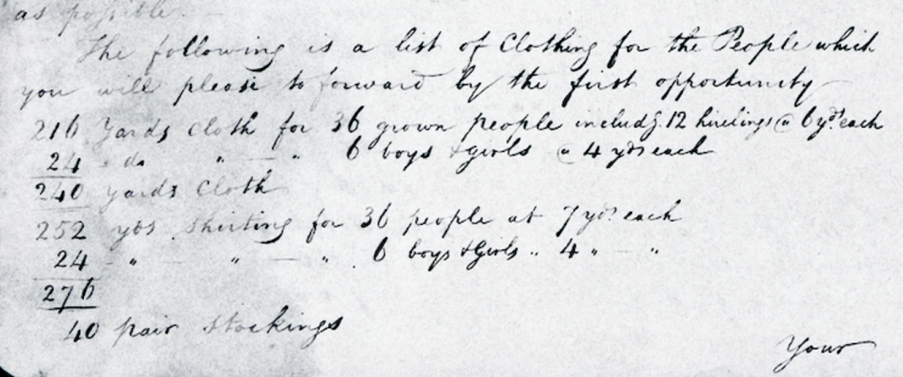 as possible. —
The following is a list of Clothing for the People which
you will please to forward by the first opportunity —
216 Yards Cloth for 36 grown people includg. 12 hirelings @ 6 yds each
24 " do " — " 6 boys & girls @ 4 yds each
240 yards Cloth
252 yds shirting for 36 people at 7 yds each
24 " — " — " 6 boys & Girls " 4 " — "
276
40 pair stockings
Your